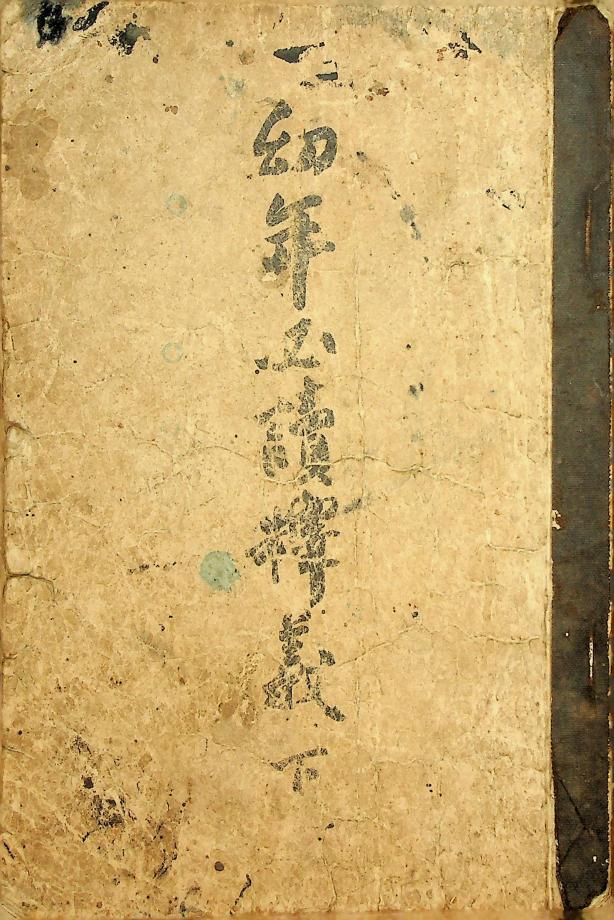 幼年必讀釋義 下